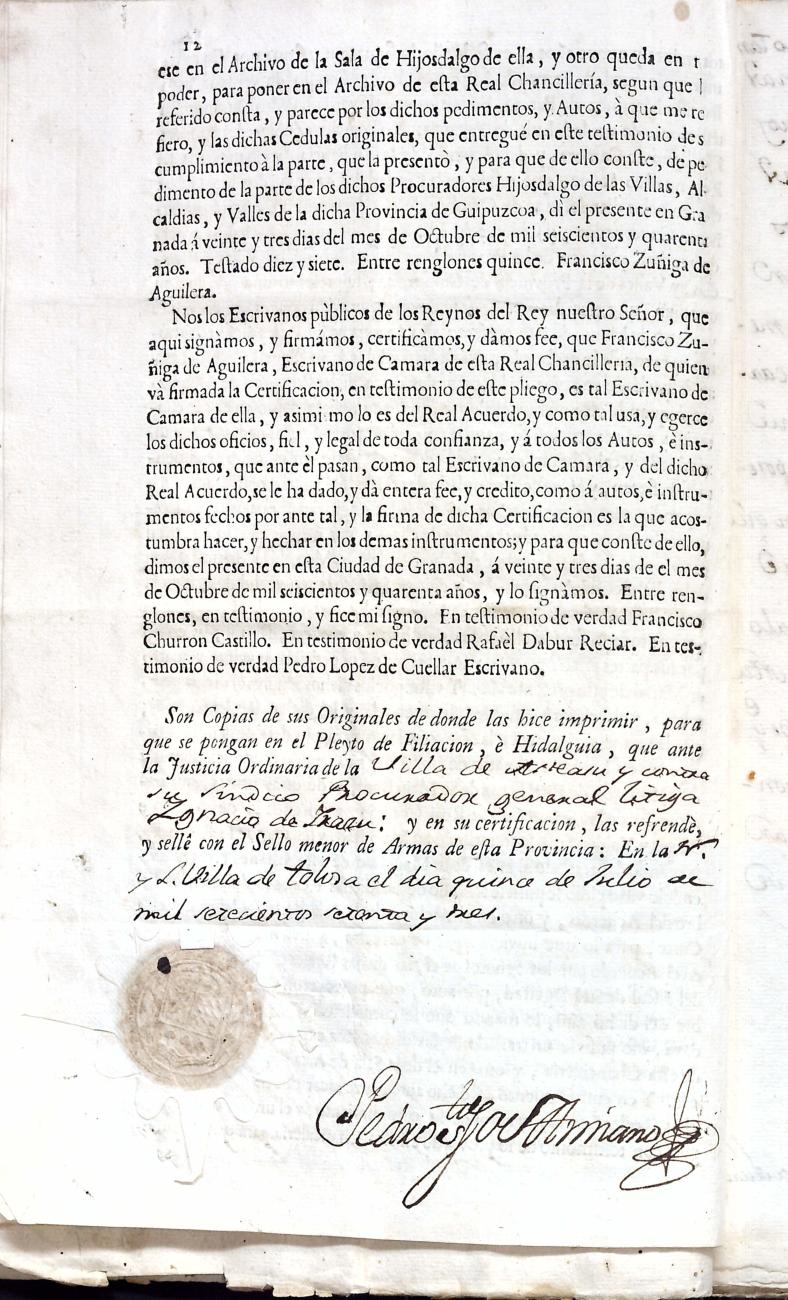 12
ese en el Archivo de la Sala de Hijosdalgo de ella, y otro queda en
poder, para poner en el Archivo de esta Real Chancillería, segun que
referido consta, y parece por los dichos pedimentos, y Autos, à que me re
fiero, y las dichas Cedulas originales, que entregué en este testimonio de s
cumplimiento à la parte, que la presentò, y para que de ello conste, de pe
dimento de la parte de los dichos Procuradores Hijosdalgo de las Villas, Al
caldias, y Valles de la dicha Provincia de Guipuzcoa, dì el presente en Gra
nada á veinte y tres dias del mes de Octubre de mil seiscientos y quarenta
años. Testado diez y siete. Entre renglones quince. Francisco Zuñiga de
Aguilera.
Nos los Escrivanos públicos de los Reynos del Rey nuestro Señor, que
aqui signàmos, y firmámos, certificàmos, y dàmos fee, que Francisco Zu-
ñiga de Aguilera, Escrivano de Camara de esta Real Chancilleria, de quien
và firmada la Certificacion, en testimonio de este pliego, es tal Escrivano de
Camara de ella, y asimi mo lo es del Real Acuerdo, y como tal usa, y egerce
los dichos oficios, fiel, y legal de toda confianza, y á todos los Autos, è ins-
trumentos, que ante èl pasan, como tal Escrivano de Camara, y del dicho
Real Acuerdo, se le ha dado, y dà entera fee, y credito, como á autos, è instru-
mentos fechos por ante tal, y la firma de dicha Certificacion es la que acos-
tumbra hacer, y hechar en los demas instrumentos; y para que conste de ello,
dimos el presente en esta Ciudad de Granada, á veinte y tres dias de el mes
de Octubre de mil seiscientos y quarenta años, y lo signàmos. Entre ren-
glones, en testimonio, y fice mi signo. En testimonio de verdad Francisco
Churron Castillo. En testimonio de verdad Rafaèl Dabur Reciar. En tes-
timonio de verdad Pedro Lopez de Cuellar Escrivano.
Son Copias de sus Originales de donde las hice imprimir, para
que se pongan en el Pleyto de Filiacion, è Hidalguia, que ante
la Justicia Ordinaria de la Villa de Atteasu y contra
su Sindico Procurador general litiga
Ygnacio de Ikazu: y en su certificacion, las refrendè,
y sellé con el Sello menor de Armas de esta Provincia: En la N.
y L. Villa de tolosa el dia quince de Julio de
mil setecientos setenta y tres.
Pedro